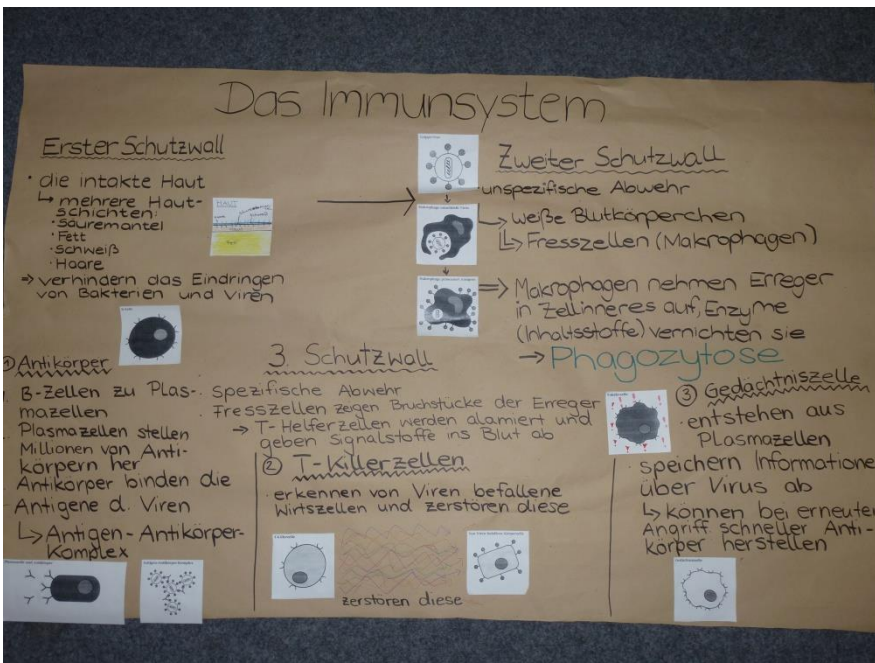 Das Immunsystem
Erster Schutzwall
· die intakte Haut
↳ mehrere Haut-
schichten:
· Säuremantel
· Fett
· Schweiß
· Haare
⇒ verhindern das Eindringen
von Bakterien und Viren
HAUT
Zweiter Schutzwall
unspezifische Abwehr
→ weiße Blutkörperchen
↳ Fresszellen (Makrophagen)
⇒ Makrophagen nehmen Erreger
in Zellinneres auf, Enzyme
(Inhaltsstoffe) vernichten sie
→ Phagozytose
3. Schutzwall
· Spezifische Abwehr
· Fresszellen zeigen Bruchstücke der Erreger
→ T-Helferzellen werden alamiert und
geben Signalstoffe ins Blut ab
① Antikörper
· B-Zellen zu Plas-
mazellen
· Plasmazellen stellen
Millionen von Anti-
körpern her
· Antikörper binden die
Antigene d. Viren
↳ Antigen-Antikörper-
Komplex
② T-Killerzellen
· erkennen von Viren befallene
Wirtszellen und zerstören diese
zerstören diese
③ Gedächtniszelle
· entstehen aus
Plasmazellen
· speichern Informatione
über Virus ab
↳ können bei erneuter
Angriff schneller Anti-
körper herstellen